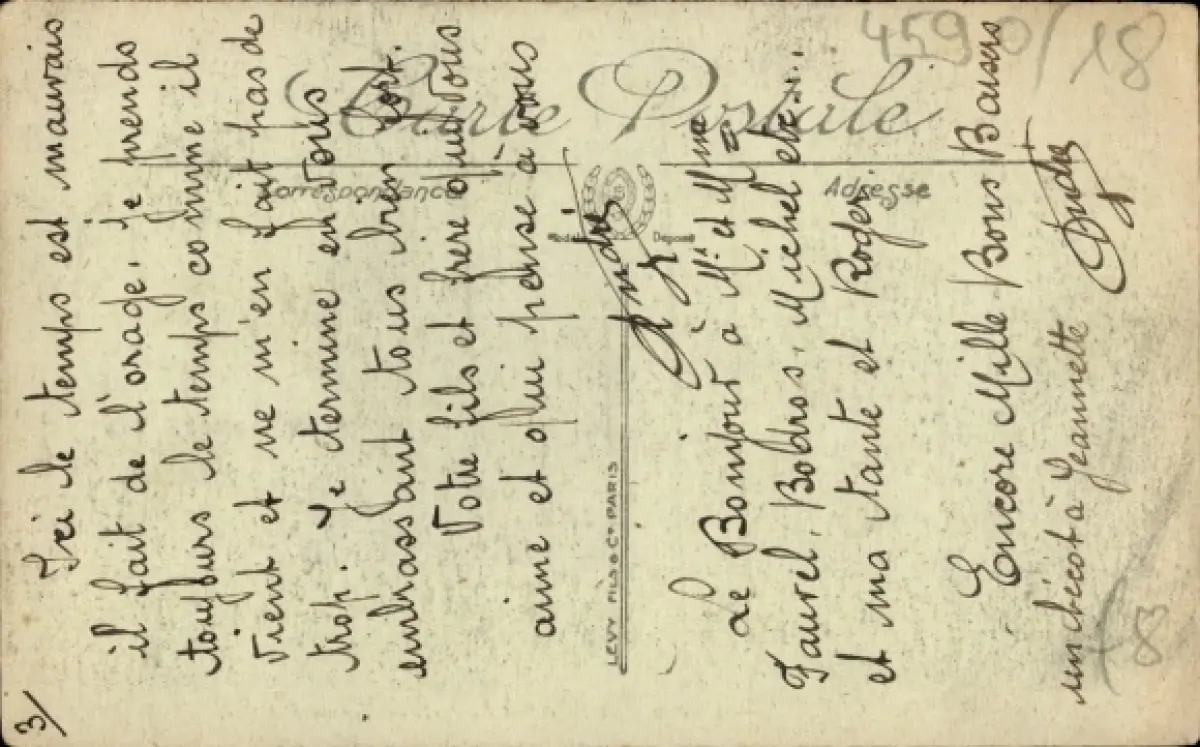 3/
Ici le temps est mauvais
il fait de l'orage, je prends
toujours le temps comme il
vient et ne m'en fait pas de
trop. Je termine en vous
embrassant tous bien fort.
Votre fils et frère qui vous
aime et qui pense à vous
André
Le Bonjour à Mr et Mme
Faurel, Boldros, Michel etc...
et ma tante et Roger
Encore Mille Bons Baisers
André
un bécot à Jeannette
Carte Postale
Correspondance
Adresse
Modèle Déposé
LEVY FILS & Cie PARIS
4590/18
18